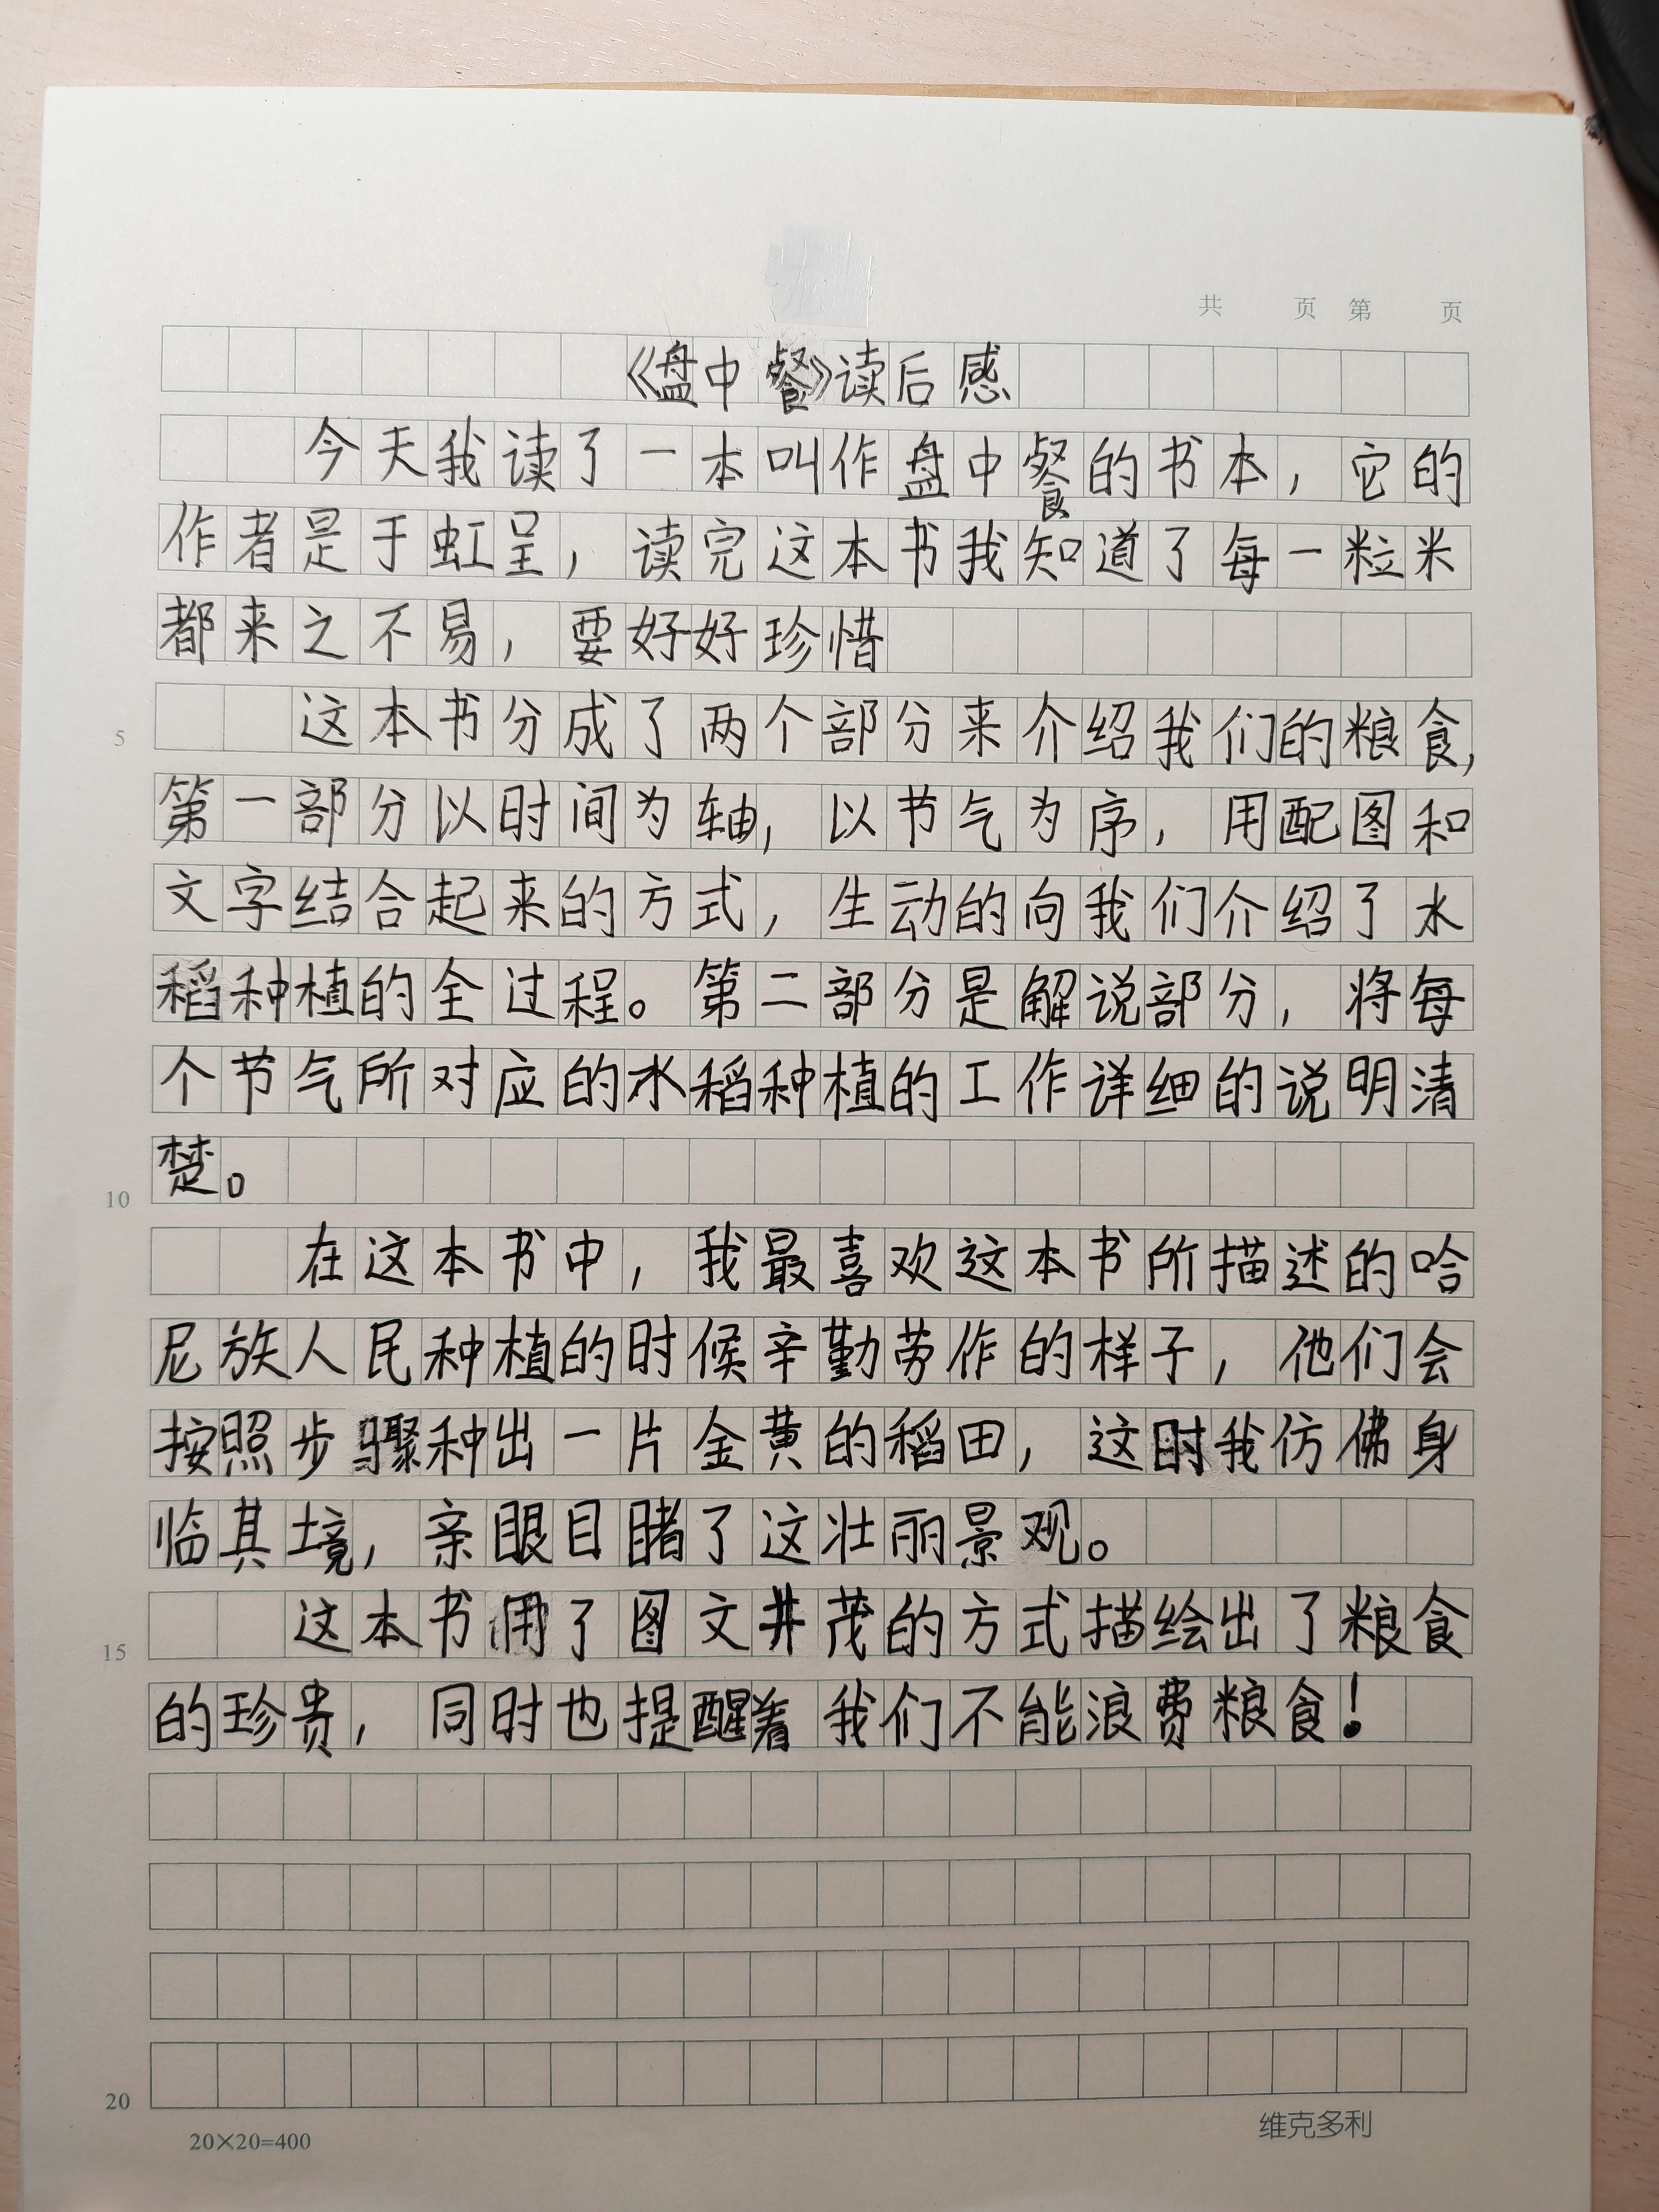 共 页 第 页
《盘中餐》读后感
今天我读了一本叫作盘中餐的书本，它的
作者是于虹呈，读完这本书我知道了每一粒米
都来之不易，要好好珍惜
5 这本书分成了两个部分来介绍我们的粮食，
第一部分以时间为轴，以节气为序，用配图和
文字结合起来的方式，生动的向我们介绍了水
稻种植的全过程。第二部分是解说部分，将每
个节气所对应的水稻种植的工作详细的说明清
10 楚。
在这本书中，我最喜欢这本书所描述的哈
尼族人民种植的时候辛勤劳作的样子，他们会
按照步骤种出一片金黄的稻田，这时我仿佛身
临其境，亲眼目睹了这壮丽景观。
15 这本书用了图文并茂的方式描绘出了粮食
的珍贵，同时也提醒着我们不能浪费粮食！
20
20×20=400 维克多利